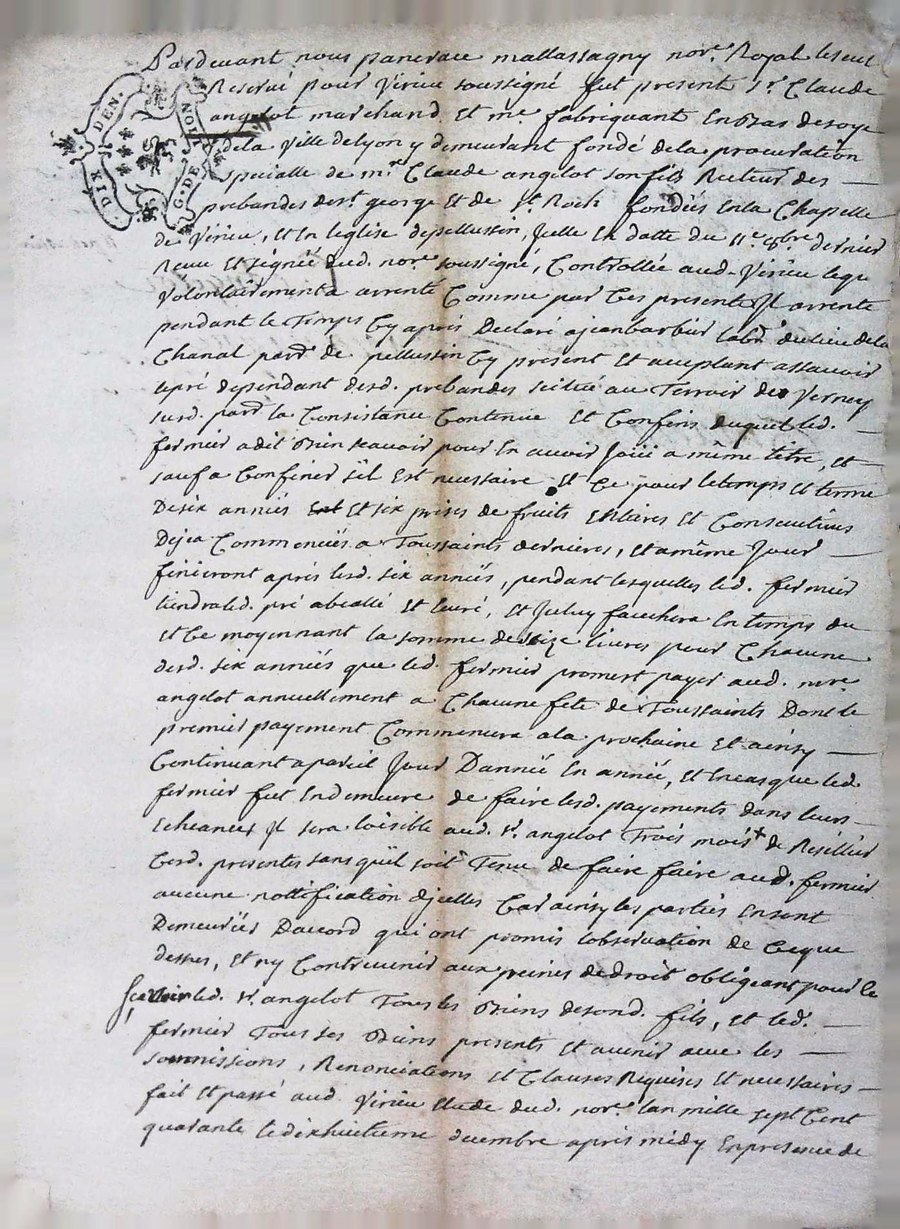 DIX DEN.
G. DE LION
Pardevant nous pancrace mallassagny nore. Royal le seul
Reservé pour virieu soussigné fut present sr. Claude
angelot marchand et me. fabriquant en bas de soye
de la ville de lyon y demeurant fondé de la procuration
specialle de mre. Claude angelot son fils Recteur des —
prebandes de st. george et de st. Roch fondés en la Chapelle
de virieu, et en leglise de pellussin, jcelle en datte du 11e. 8bre. dernier
Receu et signée dud. nore. soussigné, Controllée aud. virieu lequel
volontairement a arrenté Comme par Ces presente Jl arrente
pendant le Temps Cy apres Declaré a jean barbier labr. du lieu de la
Chanal parsse. de pellussin Cy present et acceptant assavoir
le pré dependant desd. prebandes scitué au Terroir de verney
susd. parsse. la Consistance Contenue et Confins duquel led. —
fermier a dit bien scavoir pour en avoir joüi a même titre, et —
sauf a Confiner sil est necessaire et Ce pour le temps et terme
De six années et six prises de fruits entieres et Consecutives
Deja Commencées a Toussaints dernieres, et a même Jour —
finieront après lesd. six années, pendant lesquelles led. fermier
tiendra led. pré abeallé et Curé, et jceluy fauchera en temps du
et Ce moyennant la somme de seize livres pour Chacune
desd. six années que led. fermier promest payer aud. mre.
angelot annuellement a Chacune fete de Toussaints Dont le
premier payement Commencera a la prochaine et ainsy —
Continuant a pareil Jour D'année en année, et en cas que led.
fermier fut en demeure de faire lesd. payements dans leurs —
Echeances Jl sera loisible aud. sr. angelot Trois mois + de Resillier
Cesd. presentes sans qu'il soit Tenu de faire faire aud. fermier
aucune nottification d'jcelles Car ainsy les parties en sont
Demeurées D'accord qui ont promis l'observation de Ceque
dessus, et ny Contrevenir aux peines de droit obligeant pour le
scavoir led. sr. angelot Tous les Biens de sond. fils, et led. —
fermier Tous ses Biens presents et avenir avec les —
sommissions, Renonciations et Clauses Requises et necessaires —
fait et passé aud. virieu Etude dud. nore. lan mille sept Cent
quarante le dix huitieme decembre apres midy en presence de